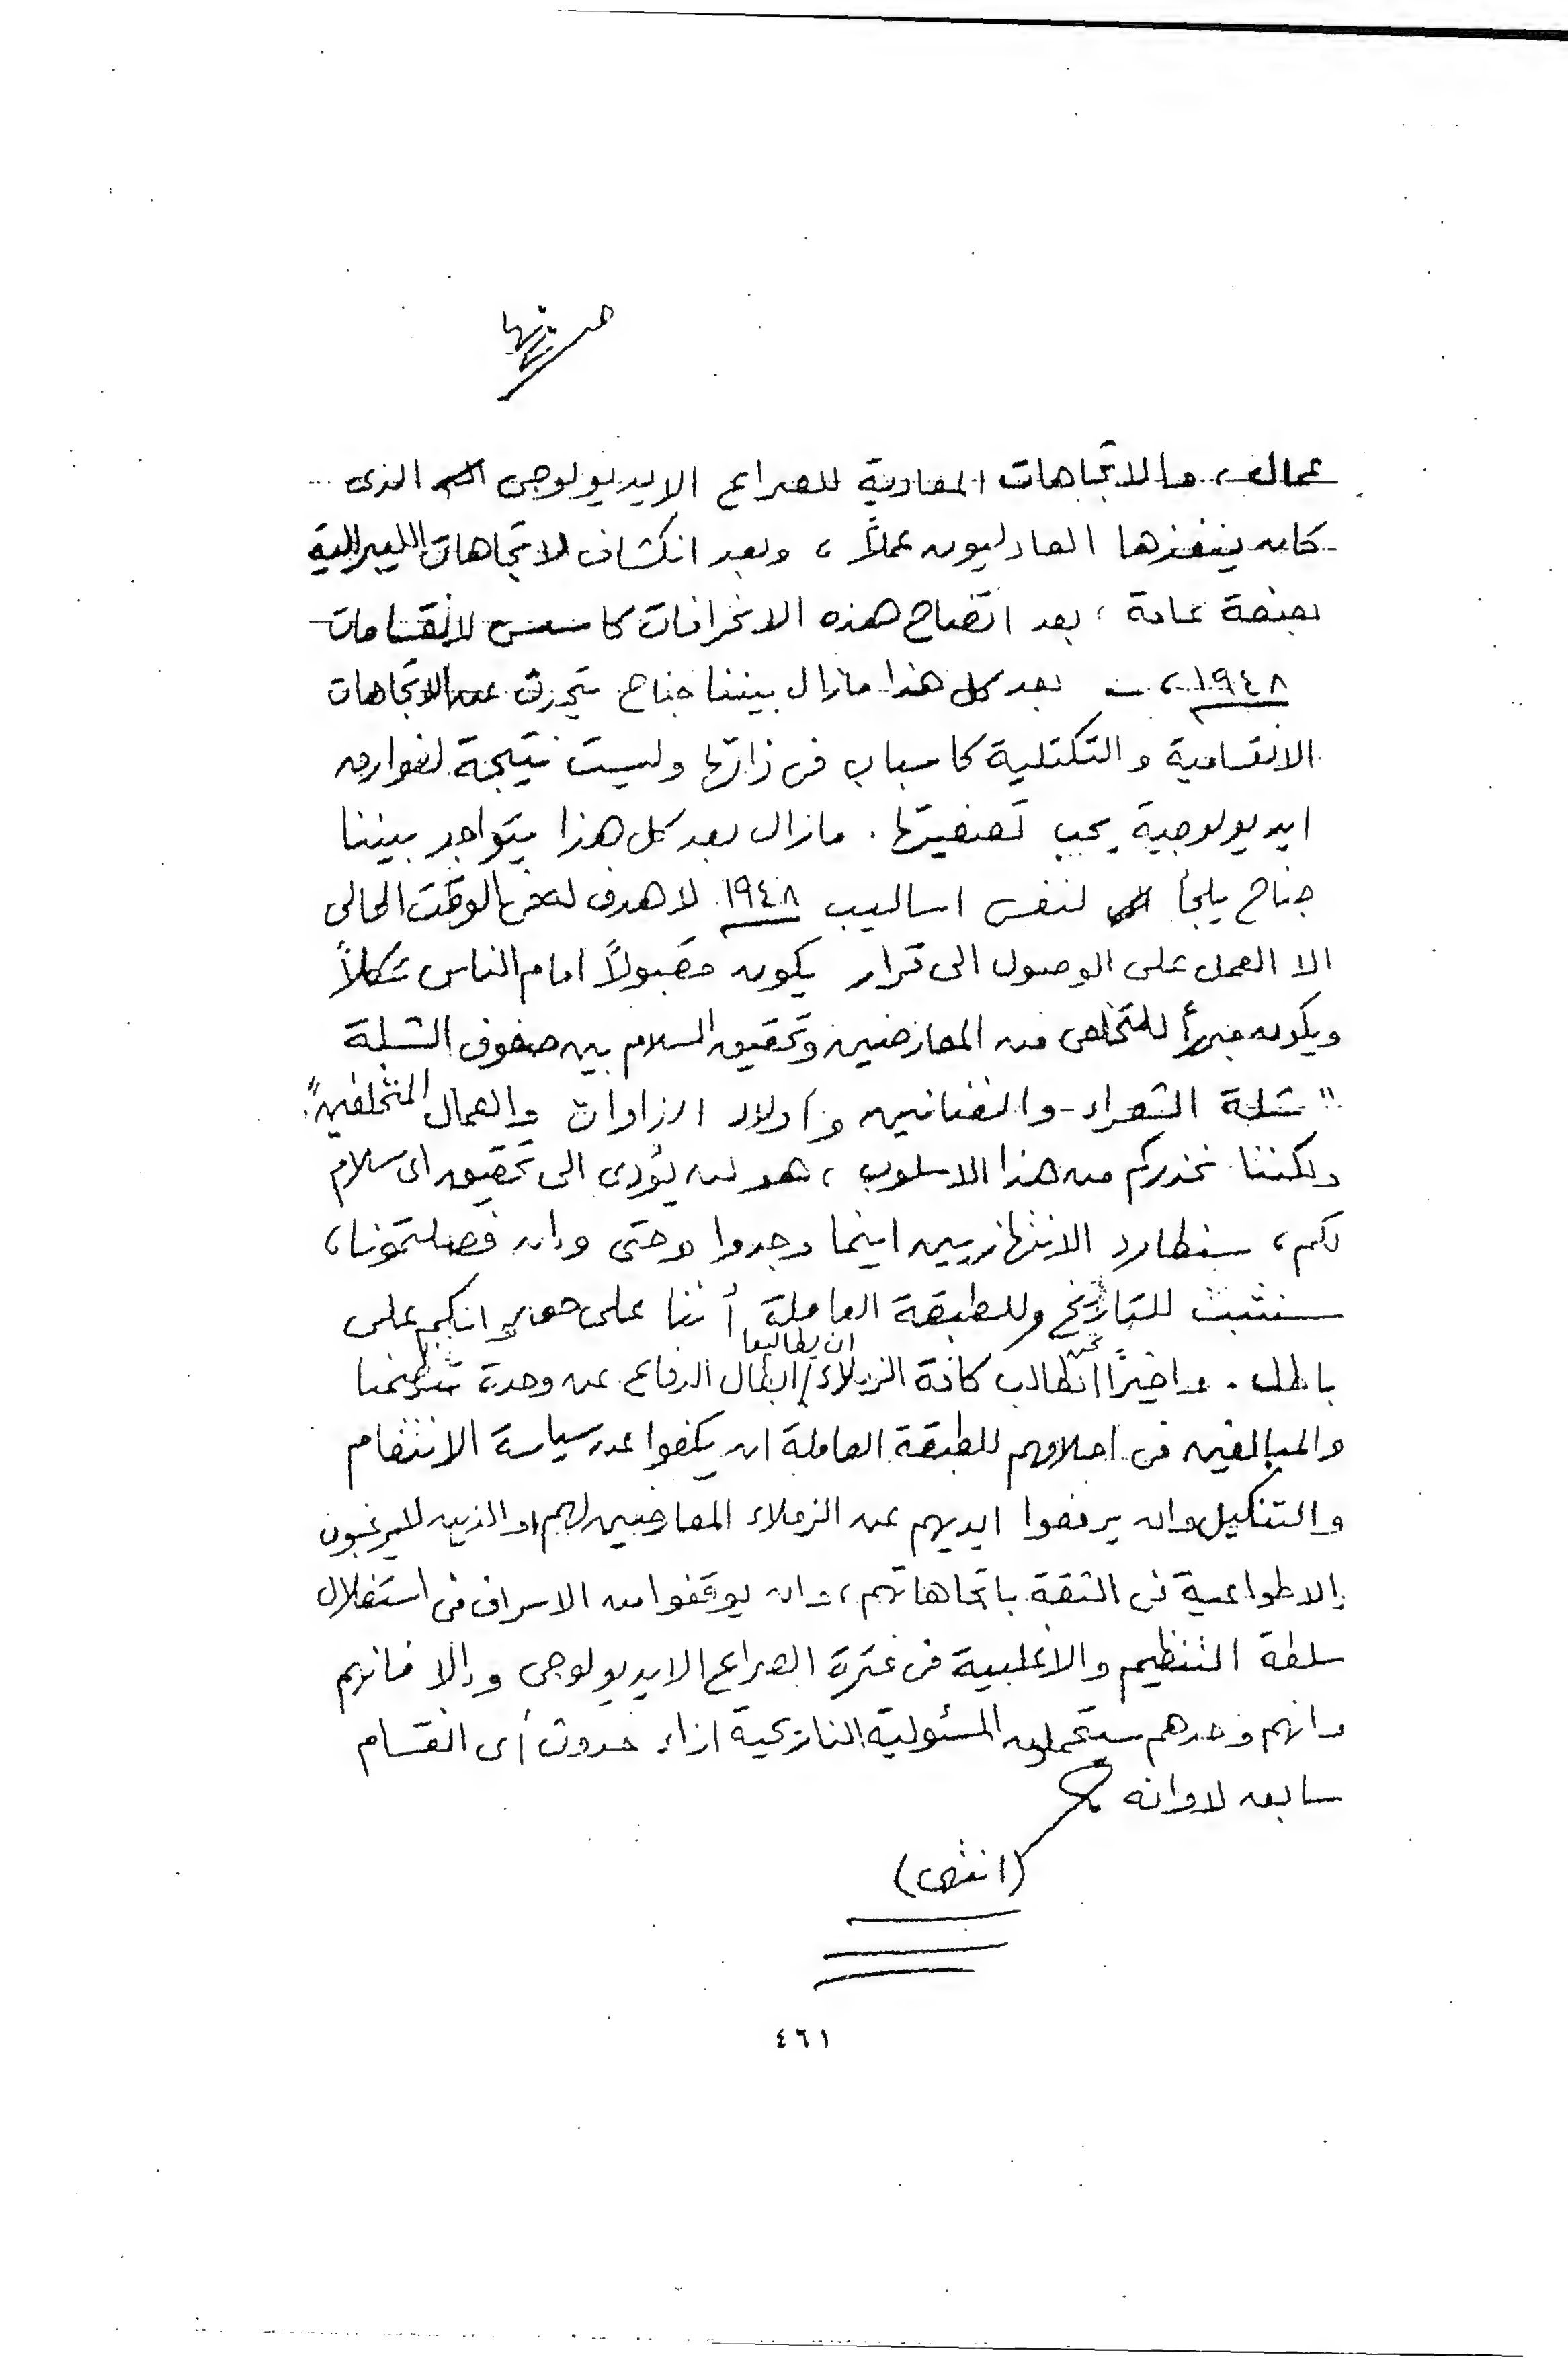 عمال، والاتجاهات المعادية للصراع الايديولوجى الذى
كان ينفذها العادليون عملاً، وبعد انكشاف الاتجاهات الليبرالية
بصفة عامة، بعد اتضاح هذه الانحرافات كأسس لانقسامات
١٩٤٨، ـ بعد كل هذا مازال بيننا جناح يتحدث عن الاتجاهات
الانقسامية والتكتلية كأسباب فى ذاتها وليست نتيجة لفوارق
ايديولوجية يجب تصفيتها. مازال بعد كل هذا يتواجد بيننا
جناح يلجأ لنفس اساليب ١٩٤٨ لا هدف له فى الوقت الحالى
الا العمل على الوصول الى قرار يكون مقبولاً امام الناس شكلاً
ويكون مبرراً للتخلص من المعارضين وتحقيق السلام بين صفوف الشلة
"شلة الشعراء والفنانين وأولاد الزاوات والعمال المثقفين".
ولكننا نحذركم من هذا الاسلوب، فهو لن يؤدى الى تحقيق اى سلام
لكم، سنطارد الانتهازيين اينما وجدوا وحتى وان فصلتمونا،
سنثبت للتاريخ وللطبقة العاملة أننا على حق وانكم على
باطل. واخيراً نحن نطالب كافة الزملاء ان يطالبوا ابطال الدفاع عن وحدة تنظيمنا
والمبالغين فى اخلاصهم للطبقة العاملة ان يكفوا عن سياسة الانتقام
والتنكيل وان يرفعوا ايديهم عن الزملاء المعارضين لهم والذين لا يرغبون
الاطواعية فى الثقة باتجاهاتهم، وان يوقفوا من الاسراف فى استغلال
سلطة التنظيم والاغلبية فى فترة الصراع الايديولوجى وإلا فانهم
وانهم وحدهم سيتحملون المسئولية التاريخية ازاء حدوث أى انقسام
سابق لاوانه
(انتهى)
٤٦١